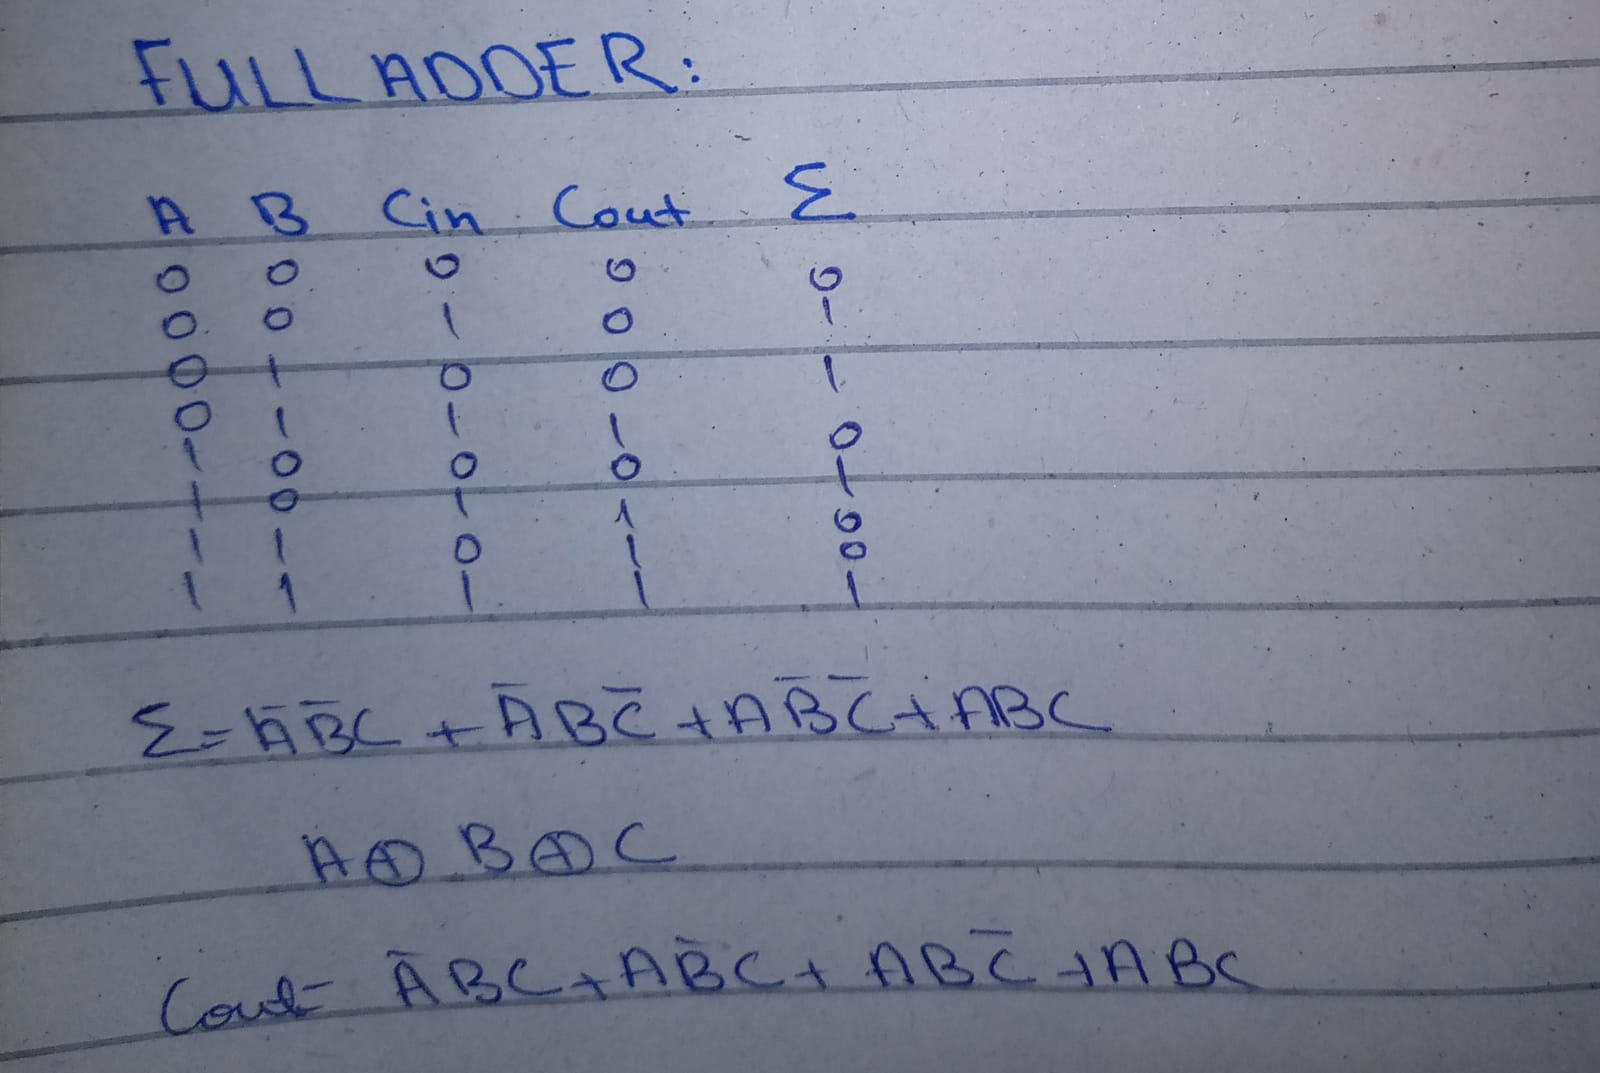 FULL ADDER:
A B Cin Cout Σ
0 0 0 0 0
0 0 1 0 1
0 1 0 0 1
0 1 1 1 0
1 0 0 0 1
1 0 1 1 0
1 1 0 1 0
1 1 1 1 1
Σ= A̅B̅C + A̅BC̅ + AB̅C̅ + ABC
A⊕B⊕C
Cout= A̅BC + AB̅C + ABC̅ + ABC